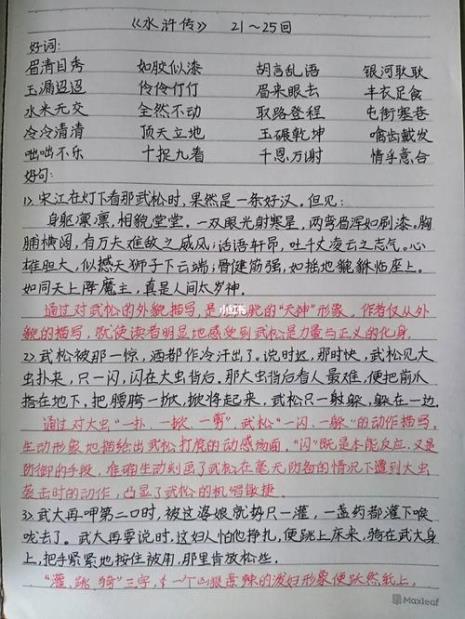 《水浒传》 21～25回
好词:
眉清目秀 如胶似漆 胡言乱语 银河耿耿
玉漏迢迢 伶伶仃仃 眉来眼去 丰衣足食
水米无交 全然不动 取路登程 屯街塞巷
冷冷清清 顶天立地 玉碾乾坤 噙齿戴发
咄咄不乐 十捉九着 千恩万谢 情孚意合
好句:
1> 宋江在灯下看那武松时,果然是一条好汉。但见:
身躯凛凛,相貌堂堂。一双眼光射寒星,两弯眉浑如刷漆。胸
脯横阔,有万夫难敌之威风;话语轩昂,吐千丈凌云之志气。心
雄胆大,似撼天狮子下云端;骨健筋强,如摇地貔貅临座上。
如同天上降魔主,真是人间太岁神。
通过对武松的外貌描写,是的"天神"形象,作者仅从外
貌的描写,就使读者明显地感受到武松是力量与正义的化身。
2> 武松被那一惊,酒都作冷汗出了。说时迟,那时快,武松见大
虫扑来,只一闪,闪在大虫背后。那大虫背后看人最难,便把前爪
搭在地下,把腰胯一掀,掀将起来,武松只一躲,躲在一边。
通过对大虫"一扑、一掀、一剪",武松"一闪、一躲"的动作描写,
生动形象地描绘出武松打虎的动感场面,"闪"既是本能反应,又是
防御的手段,准确生动刻画了武松在毫无防备的情况下遭到大虫
袭击时的动作,凸显了武松的机智敏捷。
3> 武大再呷第二口时,被这婆娘就势只一灌,一盏药都灌下喉
咙去了。武大再要说时,这妇人怕他挣扎,便跳上床来,骑在武大身
上,把手紧紧地按住被角,那里肯放松些。
"灌、跳、骑"三字,一个心狠毒辣的泼妇形象便跃然纸上,
Maxleaf